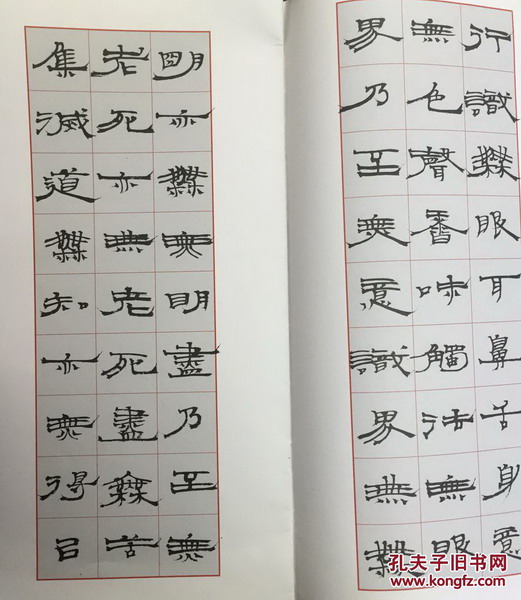 行識無眼耳鼻舌身意
無色聲香味觸法無眼
界乃至無意識界無無
明亦無無明盡乃至無
老死亦無老死盡無苦
集滅道無知亦無得以
孔夫子旧书网
www.kongfz.com